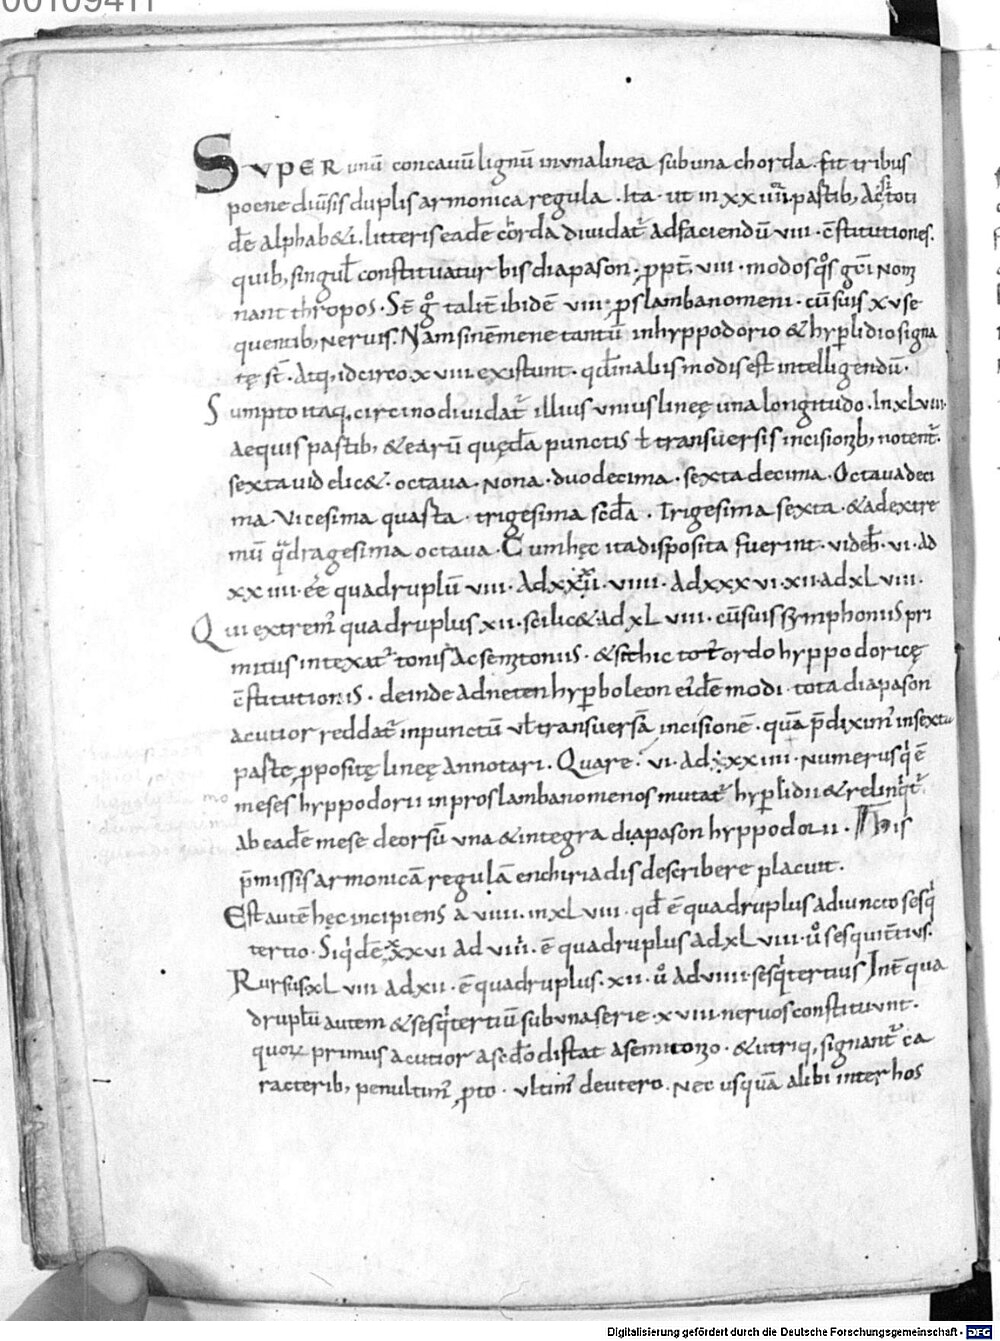 00109411
SVPER unū concauū lignū in una linea sub una chorda fit tribus
poene diuīsis duplis armonica regula. Ita ut in xx iiii partib; Ac toti
dē alphab&i litteris eadē corda diuidat ad faciendū viii c̄stitutiones.
quib; singul constituatur bis diapason, viii modos
nant thropos. ibidē viii pslambanomeni cū suis xv se
quentib; neruis. Nam sinēmene tantū in hyppodorio & hyplidio signa
tę st̄. Atq; idcirco xviii existunt. qd̄ in aliis modis est intelligendū.
Sumpto itaq; circino diuidat illius unius lineę una longitudo. In xlviii
aequis partib; & earū quędā punctis ł transuersis incisionib; notent.
sexta uidelic&. octaua. nona. duodecima. sexta decima. Octaua deci
ma. Vicesima quarta. trigesima scda. Trigesima sexta. & ad extre
mū qdragesima octaua. Cum hęc ita disposita fuerint. videb. vi. ad
xx iiii ēē quadruplū viii. Ad xxxii. viiii. Ad xxx vi. xii. ad xl viii.
Qui extrem quadruplus xii. scilic& ad xl viii. cū suis symphoniis pri
mitus intexat tonis ac semtoniis. & sit hic tot ordo hyppodoricę
c̄stitutionis. deinde ad neten hypboleon eidē modi tota diapason
acutior reddat in punctū ul transuersā incisionē. quā p̄dixim in sexta
parte, ppositę lineę annotari. Quare. vi. ad xx iiii. numerus q ē
meses hyppodorii in proslambanomenos mutat hyplidii & relinqt
Ab eadē mese deorsū una & integra diapason hyppodorii. His
p̄missis armonicā regulā enchiriadis describere placuit.
Est autē hęc incipiens a viiii. in xl viii. qd ē quadruplus adiuncto sesq
tertio. Siqdē xxxvi ad viiii. ē quadruplus ad xl viii. u sesquitius.
Rursus xl viii ad xii. ē quadruplus. xii. u ad viiii sesqtertius Int qua
druplū autem & sesqtertiū sub una serie xviii neruos constituunt.
quo primus acutior a scdo distat a semitonio. & utriq; signant ca
racterib; penultim pto. ultim deutero. Nec usquā alibi inter hos
Digitalisierung gefördert durch die Deutsche Forschungsgemeinschaft - DFG